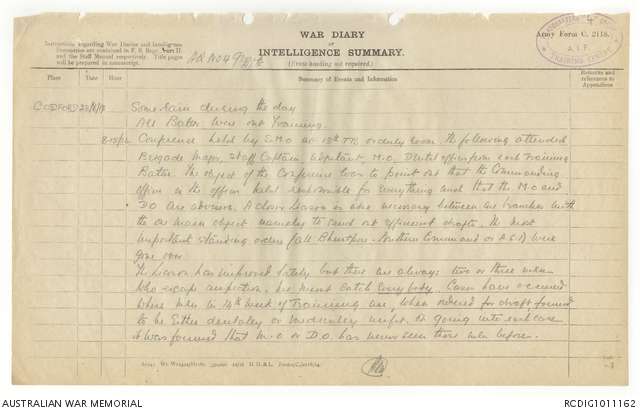 WAR DIARY
or
INTELLIGENCE SUMMARY.
(Erase heading not required.)
Army Form C. 2118.
Instructions regarding War Diaries and Intelligence
Summaries are contained in F. S. Regs., Part II.
and the Staff Manual respectively. Title pages
will be prepared in manuscript.
4
A.I.F.
TRAINING
Place
Date
Hour
Summary of Events and Information
Remarks and
references to
Appendices
CODFORD
Some rain during the day
All Batns were out training.
Conference held by S.M.O at 13th TB orderly room the following attended
Brigade Major, Staff Captain Adjutant, M.O, Dental officer from each Training
Battn. The object of the Conference was to point out that the Commanding
officer is the officer held responsible for everything and that the M.O and
DO are advisors. A closer liaison is also necessary between the branches with
the one main object namely to send out efficient drafts. The most
important standing orders Southern Command or A.I.F were
gone over
The liaison has improved lately but there are always two or three men
who escape inspection, we must catch everybody. Cases have occurred
where men in 14th week of Training are, when ordered for draft found
to be either dentally or medically unfit. On going into each case
it was found that M.O or D.O. has never seen these men before.
AUSTRALIAN WAR MEMORIAL
RCDIG1011162